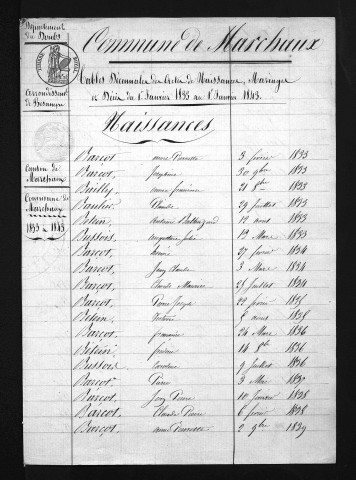 Département
du Doubs
Arrondissement
de Besançon
Canton de
Marchaux
Commune de
Marchaux
1833 à 1843
Commune de Marchaux
Tables Décennales des Actes de Naissances, Mariages
et Décès du 1er Janvier 1833 au 1er Janvier 1843.
Naissances
Barçot, anne Pierrette 3 février 1833
Barçot, 30 9bre 1833
Bailly, 21 8bre 1833
Claude 29 Juillet 1833
Betein, 12 aout 1833
Bussois, 19 Mars 1833
Barçot, 27 février 1834
Barçot, Jean Claude 3 Mars 1834
Barçot, Claude Maurice 25 Juillet 1834
Barçot, Pierre Joseph 22 février 1835
Betein, Antoine 8 aout 1835
Barçot, 24 Mars 1836
Betein, 14 8bre 1836
Bussois, Caroline 9 Juillet 1836
Barçot, Pierre 3 Mai
Barçot, Jean Pierre 10 Janvier 1838
Barçot, Claude Pierre 6 février 1838
Barçot, anne Pierrette 2 9bre 1839